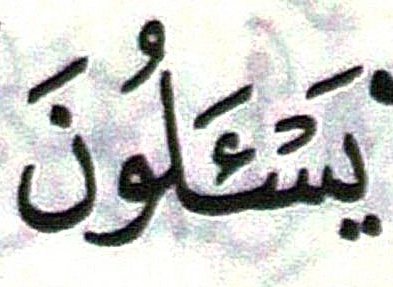 يَسْـَٔلُونَ